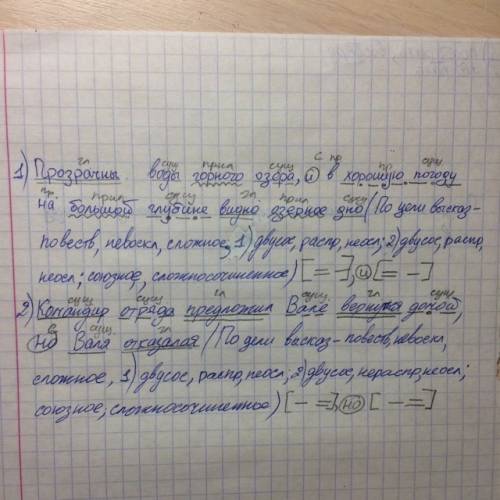 гл сущ прил сущ с пр пр сущ
1) Прозрачны воды горного озера, и в хорошую погоду
пр. прил сущ гл прил сущ
на большой глубине видно озерное дно (По цели высказ-
повеств, невоскл, сложное, 1) двусос, распр, неосл; 2) двусос, распр,
неосл; союзное, сложносочиненное) [= –], и [= –]
сущ сущ гл сущ. гл сущ
2) Командир отряда предложил Вале вернутся домой,
с сущ. гл
но Валя отказалая (По цели высказ-повеств, невоскл,
сложное, 1) двусос, распр, неосл; 2) двусос, нераспр, неосл;
союзное; сложносочиненное) [– =], но [– =]